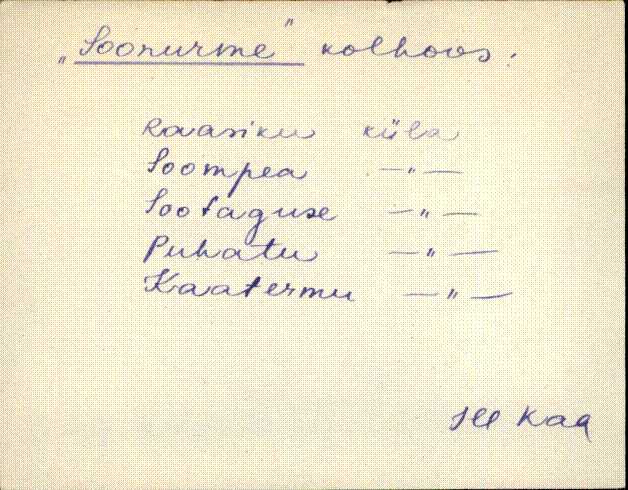 „Soonurme” kolhoos.
Raasiku küla
Soompea —"—
Sootaguse —"—
Puhatu —"—
Kaatermu —"—
Kaa